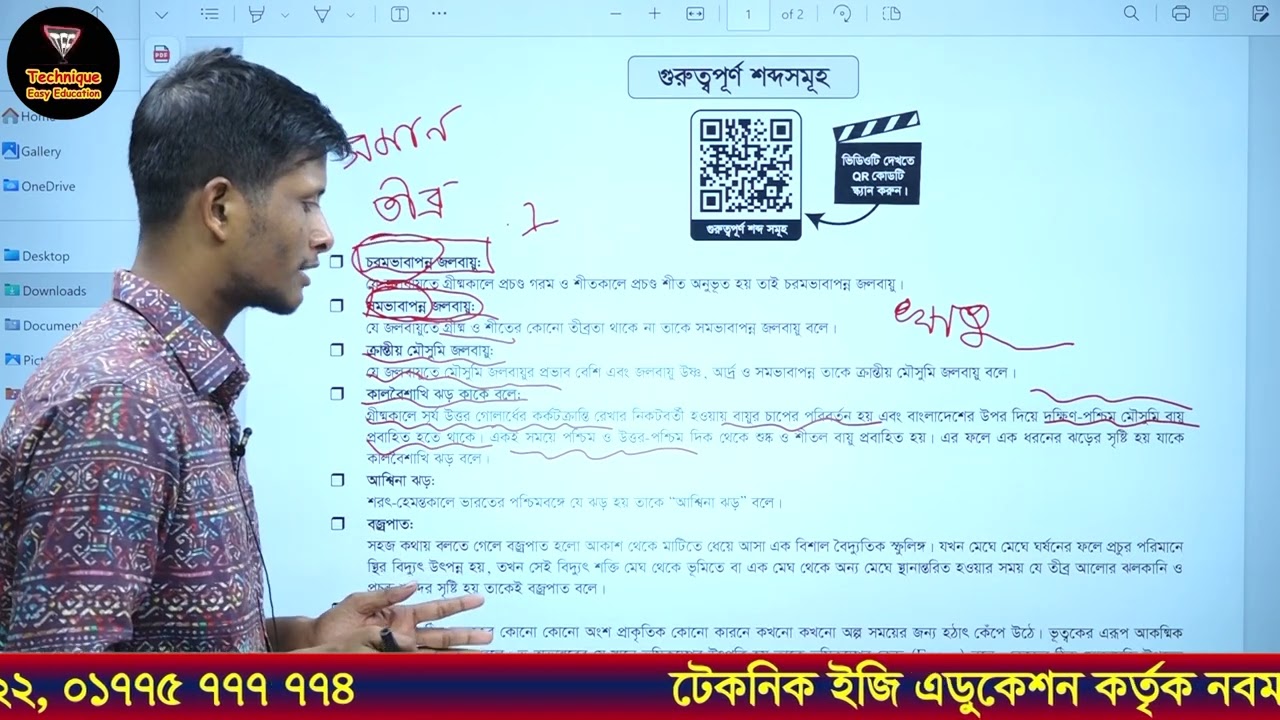 TCC
Technique
Easy Education
1 of 2
Home
Gallery
OneDrive
Desktop
Downloads
Documen
Pict
গুরুত্বপূর্ণ শব্দসমূহ
ভিডিওটি দেখতে
QR কোডটি
স্ক্যান করুন।
গুরুত্বপূর্ণ শব্দ সমূহ
সমান
তীব্র
চরমভাবাপন্ন জলবায়ু:
গ্রীষ্মকালে প্রচণ্ড গরম ও শীতকালে প্রচণ্ড শীত অনুভূত হয় তাই চরমভাবাপন্ন জলবায়ু।
সমভাবাপন্ন জলবায়ু:
যে জলবায়ুতে গ্রীষ্ম ও শীতের কোনো তীব্রতা থাকে না তাকে সমভাবাপন্ন জলবায়ু বলে।
ক্রান্তীয় মৌসুমি জলবায়ু:
যে জলবায়ুতে মৌসুমি জলবায়ুর প্রভাব বেশি এবং জলবায়ু উষ্ণ, আর্দ্র ও সমভাবাপন্ন তাকে ক্রান্তীয় মৌসুমি জলবায়ু বলে।
কালবৈশাখি ঝড় কাকে বলে:
গ্রীষ্মকালে সূর্য উত্তর গোলার্ধের কর্কটক্রান্তি রেখার নিকটবর্তী হওয়ায় বায়ুর চাপের পরিবর্তন হয় এবং বাংলাদেশের উপর দিয়ে দক্ষিণ-পশ্চিম মৌসুমি বায়ু
প্রবাহিত হতে থাকে। একই সময়ে পশ্চিম ও উত্তর-পশ্চিম দিক থেকে শুষ্ক ও শীতল বায়ু প্রবাহিত হয়। এর ফলে এক ধরনের ঝড়ের সৃষ্টি হয় যাকে
কালবৈশাখি ঝড় বলে।
আশ্বিনা ঝড়:
শরৎ-হেমন্তকালে ভারতের পশ্চিমবঙ্গে যে ঝড় হয় তাকে “আশ্বিনা ঝড়” বলে।
বজ্রপাত:
সহজ কথায় বলতে গেলে বজ্রপাত হলো আকাশ থেকে মাটিতে ধেয়ে আসা এক বিশাল বৈদ্যুতিক স্ফুলিঙ্গ। যখন মেঘে মেঘে ঘর্ষনের ফলে প্রচুর পরিমানে
স্থির বিদ্যুৎ উৎপন্ন হয়, তখন সেই বিদ্যুৎ শক্তি মেঘ থেকে ভূমিতে বা এক মেঘ থেকে অন্য মেঘে স্থানান্তরিত হওয়ার সময় যে তীব্র আলোর ঝলকানি ও
সৃষ্টি হয় তাকেই বজ্রপাত বলে।
কোনো কোনো অংশ প্রাকৃতিক কোনো কারনে কখনো কখনো অল্প সময়ের জন্য হঠাৎ কেঁপে উঠে। ভূত্বকের এরূপ আকস্মিক
২২, ০১৭৭৫ ৭৭৭ ৭৭৪ টেকনিক ইজি এডুকেশন কর্তৃক নবম